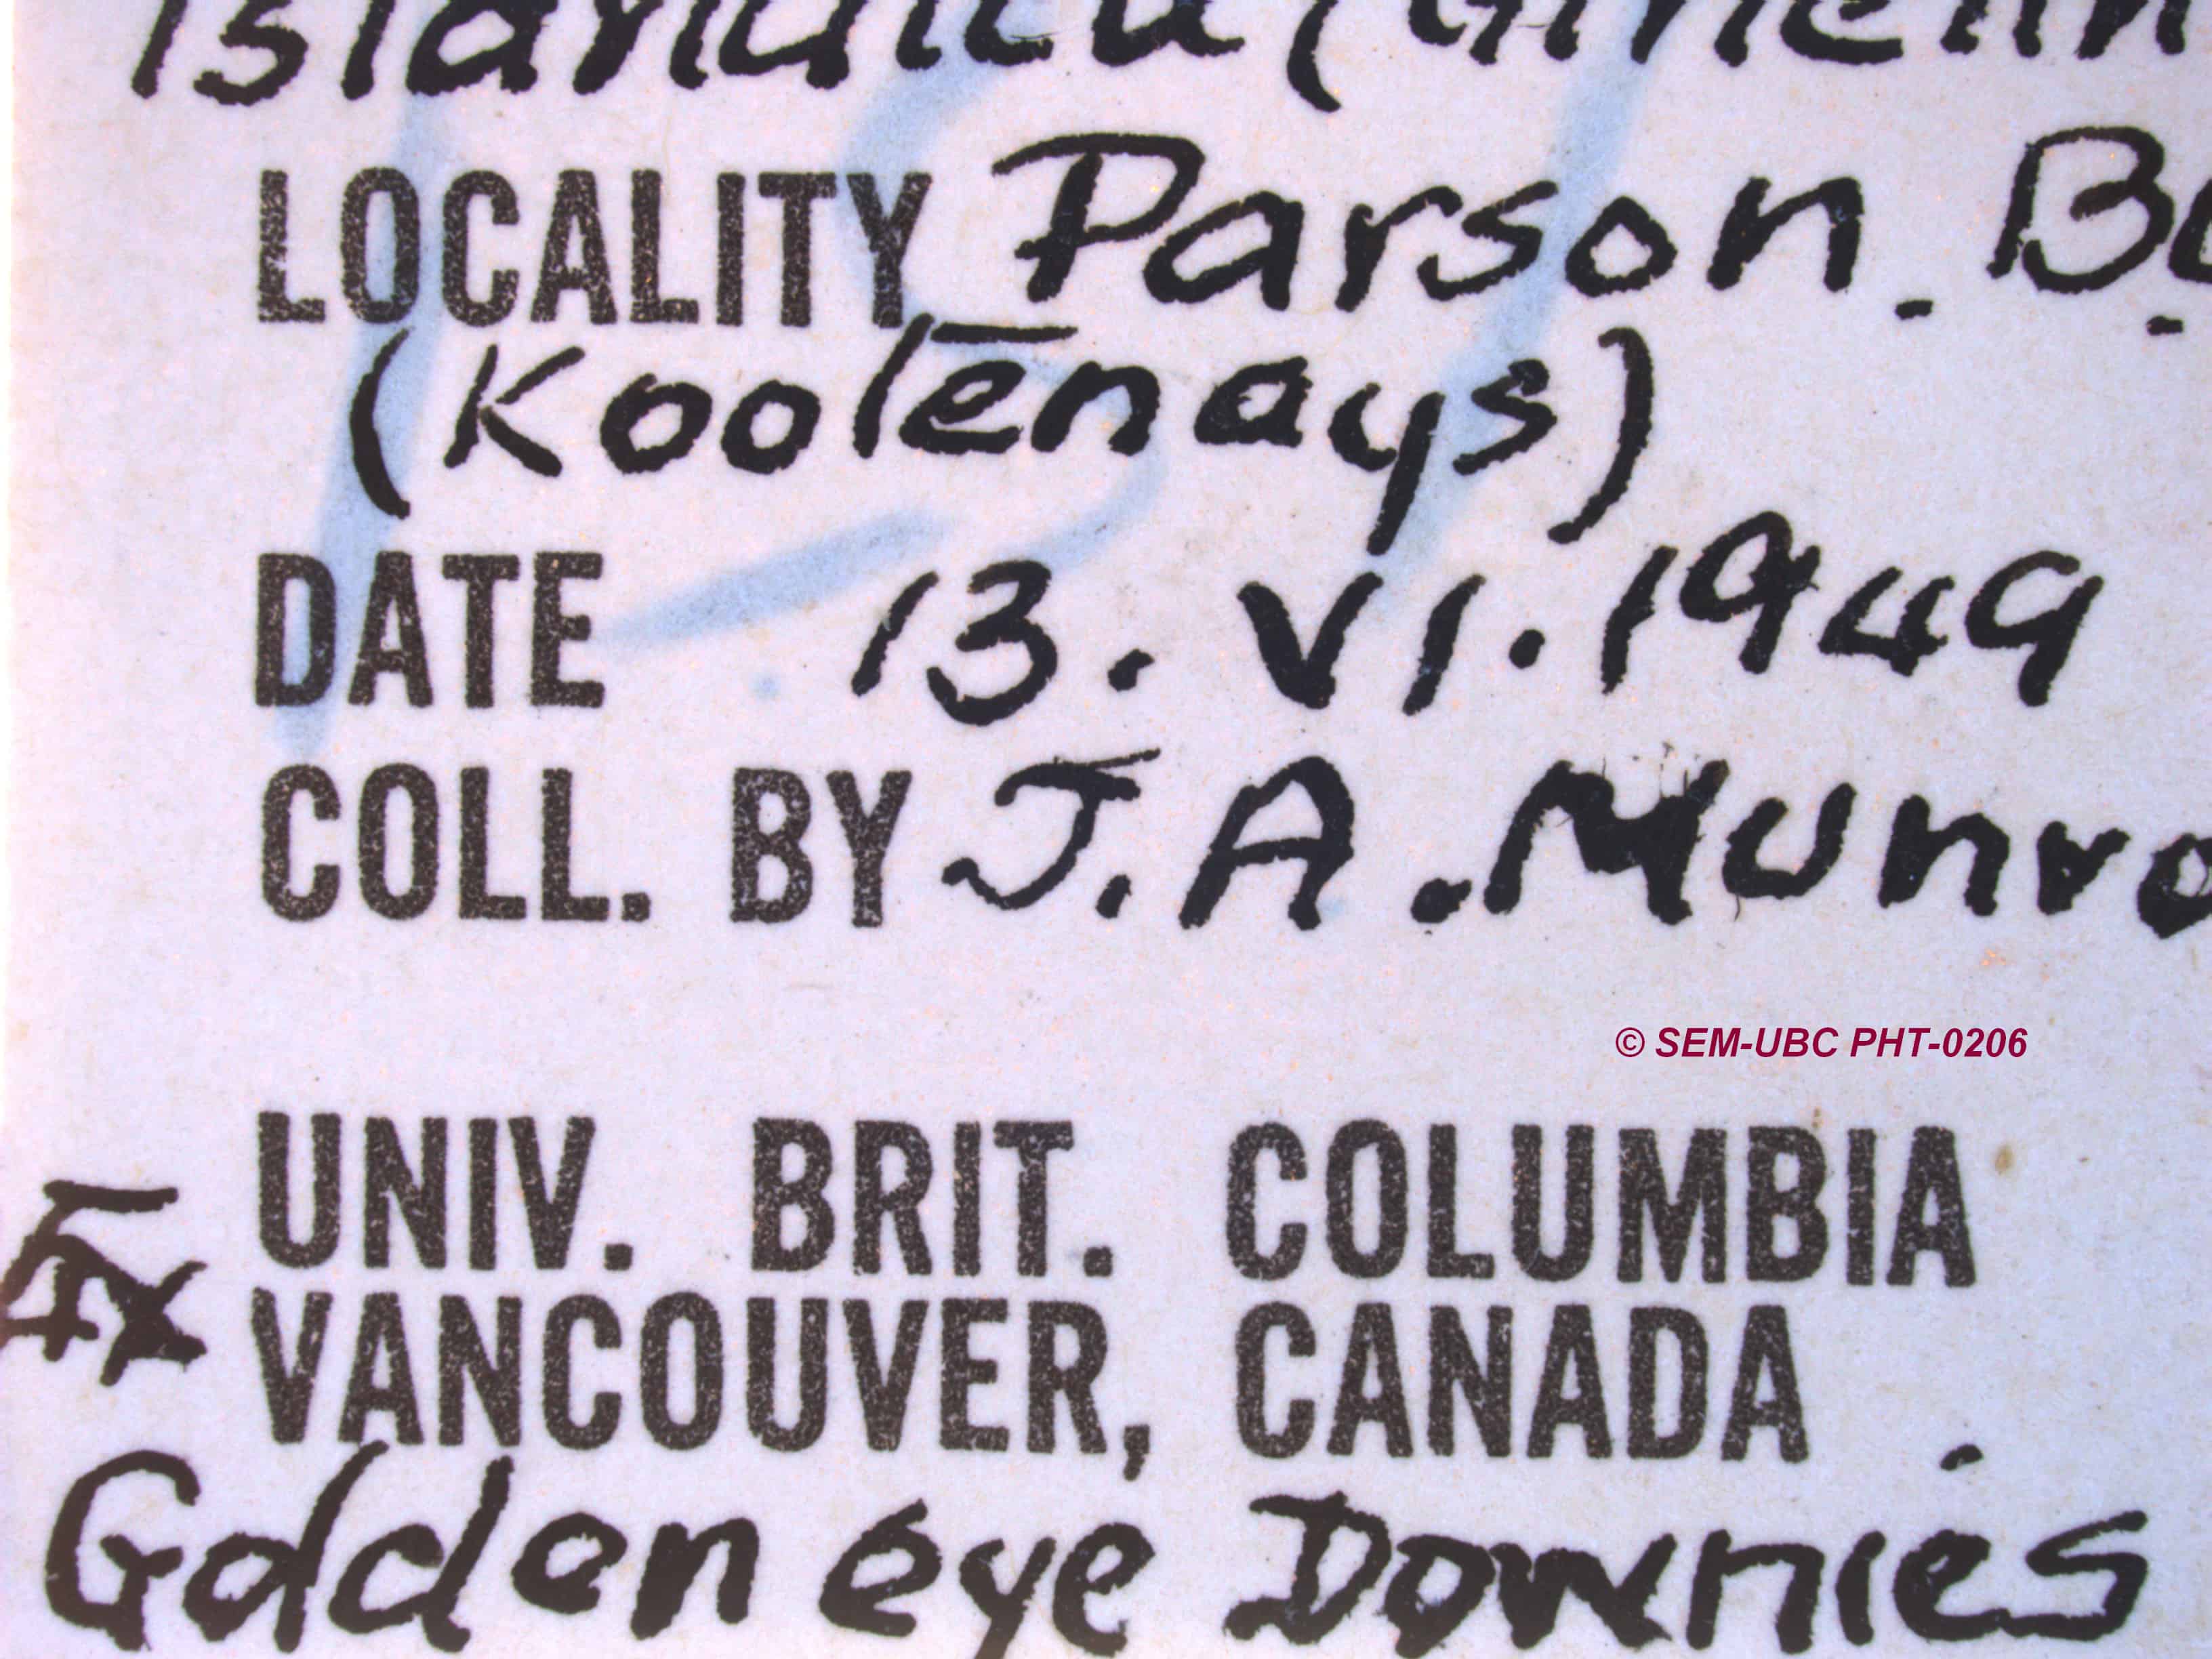 islandica (Gmelin
LOCALITY Parson. B.
(Kootenays)
DATE 13. VI. 1949
COLL. BY J. A. Munro
© SEM-UBC PHT-0206
UNIV. BRIT. COLUMBIA
VANCOUVER, CANADA
Golden eye Downies